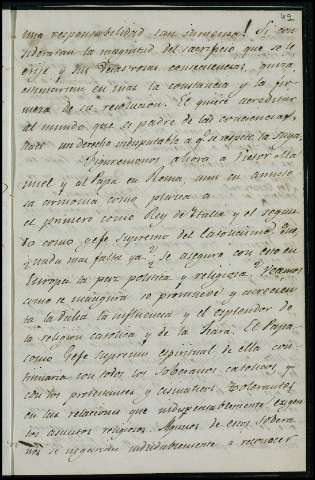 42
una responsabilidad tan inmensa! Si con
sideraran la magnitud del sacrificio que se le
exije y sus desastrosas consecuencias, quiza
estimarian en mas la constancia y la fir
meza de su resolucion. El quiere acreditar
al mundo que es padre de las conciencias,
tiene un derecho indisputable a q. se respete la suya.
Pintemonos ahora a Victor Ma
nuel y al Papa en Roma, aun en
armonia como
el primero como Rey de Italia y el segun
do como Gefe Supremo del Catolicismo. Que,
¿nada mas falta ya? ¿Se aseguro con esto en
Europa la paz politica y religiosa? Veamos
como se mejora se promueve y acrecien
ta la dicha la influencia y el esplendor de
la religion catolica y de la Italia. El Papa
como Gefe Supremo espiritual de ella con
tinuaria con todos los Soberanos catolicos y
con los protestantes y cismaticos tolerantes
en las relaciones que indispensablemente exigen
los asuntos religiosos. Algunos de estos Sobera
nos se negarian indudablemente a reconocer